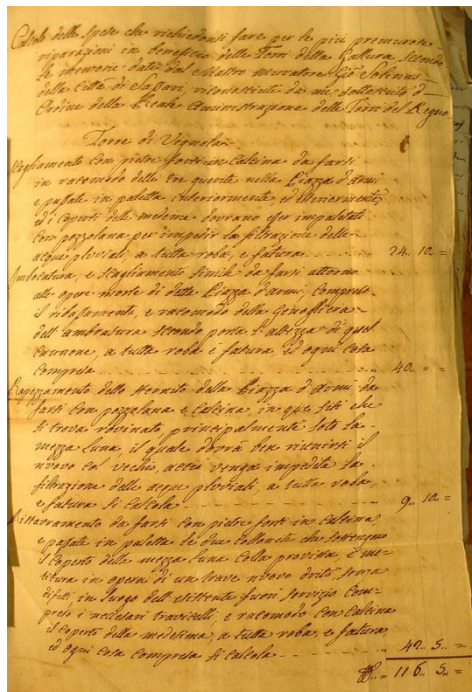 Calcolo delle spese che richiedonsi fare per le più premurose
riparazioni in beneficio delle Torri della Gallura secondo
le memorie date dal Mastro muratore Gio Solinas
della Città di Sassari, riconosciuti da me sottoscritto d
Ordine della Reale Amministrazione delle Torri del Regno
Torre di Vignola
Scagliamento con pietre forti in Calcina da farsi
in racomodo delle tre guerite nella Piazza d'armi
e passate in paletta interiormente, ed esteriormente
ed i coperti delle medeme dovrano esser impastati
con pozzolana per impedir la filtrazione delle
acque pluviali, a tutta roba, e fattura 24.. 10 =
Imbocatura, e Scagliamento simile da farsi attorno
alle opere morte di detta Piazza d'armi, compreso
il rifassamento, e racomodo della
dell'ambrasura secondo porta l'altezza di quel
cannone, a tutta roba e fatura, ed ogni cosa
compresa 40 = =
Rapezzamento dello sternito della Piazza d'armi da
farsi con pozzolana e Calcina, in que siti che
si trova rovinato principalmente soto la
mezza luna, il quale dovrà ben riunirsi il
nuovo col vechio, acciò venga impedita la
filtrazione delle acque pluviali, a tutta roba
e fatura si calcola 9.. 10 =
da farsi con pietre forti in Calcina,
e passate in paletta le due collonete che sostengono
il coperto della mezza luna colla provista, e me-
titura in opera di un trave nuovo driti, senza
difeti, in luogo dell'esistente fuori servizio com-
preso i necessari travicelli, e racomodo con Calcina
il coperto della medesima, a tutta roba, e fatura,
ed ogni cosa compresa si calcola 42.. 5.. =
116.. 5.. =